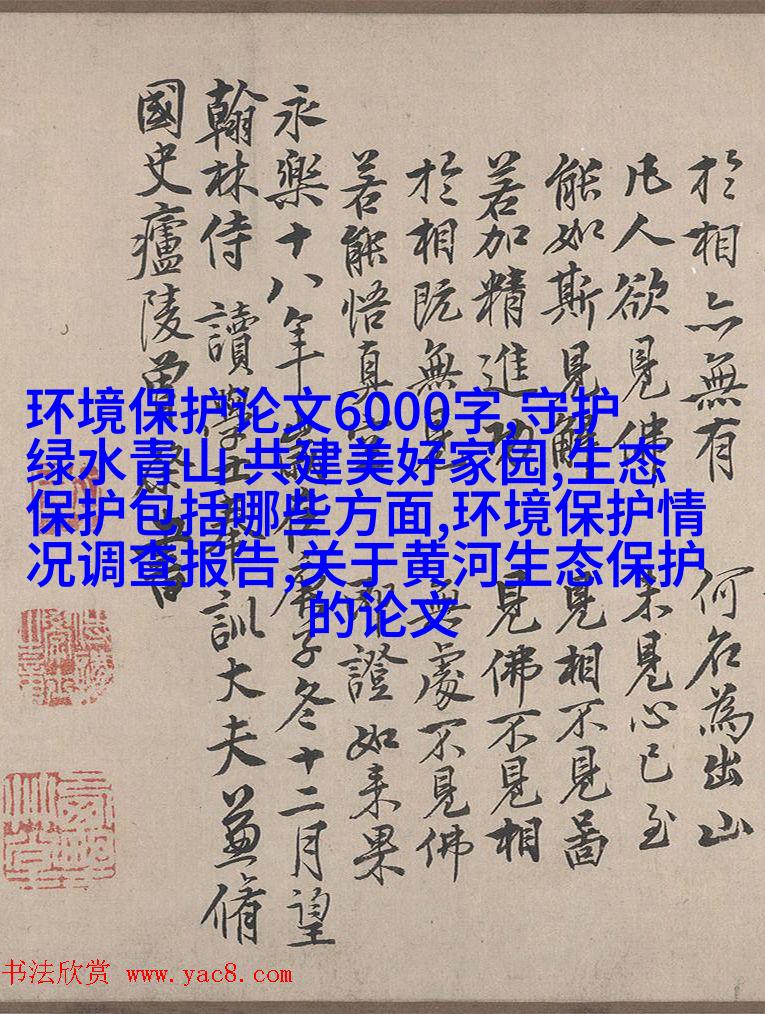 於相亦無有 何名為出山
凡人欲見佛 未見心已至
能如斯見解 見相不見
若加精進功 見佛不見相
於相既無見 無處不見佛
若能悟真空 即證如来果
永樂十八年歲在庚子冬十二月望
翰林侍讀學士奉訓大夫兼脩
國史廬陵曾棨書
环境保护论文6000字,守护
绿水青山,共建美好家园,生态
保护包括哪些方面,环境保护情
况调查报告,关于黄河生态保护
的论文
书法欣赏 www.yac8.com